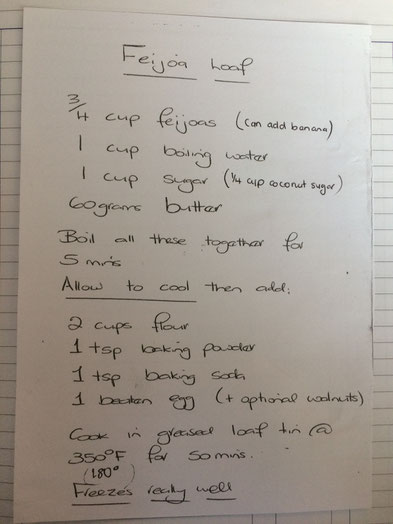 Feijoa Loaf
3/4 cup feijoas (can add banana)
1 cup boiling water
1 cup sugar (1/4 cup coconut sugar)
60grams butter
Boil all these together for
5 mins
Allow to cool then add:
2 cups flour
1 tsp baking powder
1 tsp baking soda
1 beaten egg (+ optional walnuts)
Cook in greased loaf tin @
350°F for 50 mins.
(180°)
Freezes really well